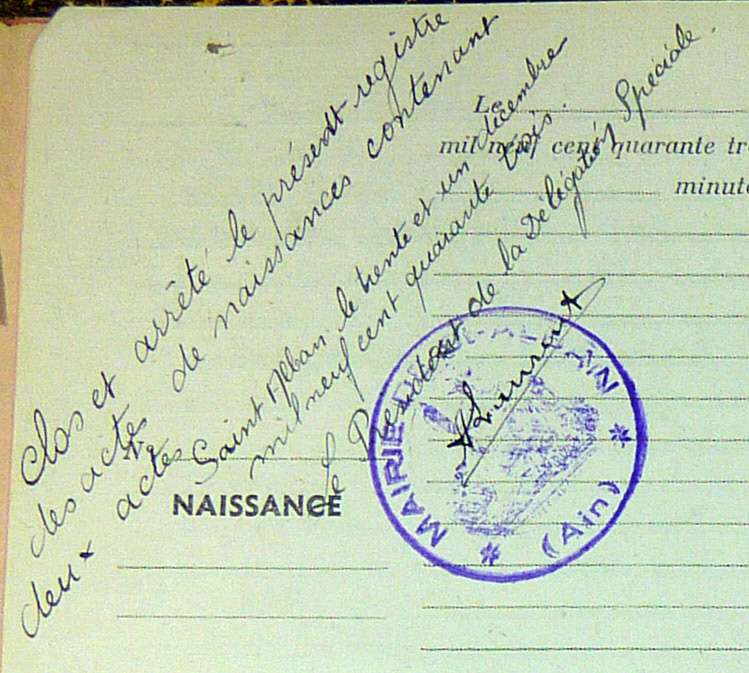 Clos et arrêté le présent registre
des actes de naissances contenant
deux actes
Saint Alban le trente et un décembre
mil neuf cent quarante trois.
Le Président de la Délégation Spéciale.
ALaurent
Le
mil neuf cent quarante tr
minut
NAISSANCE
MAIRIE DE ST-ALBAN
* (Ain) *